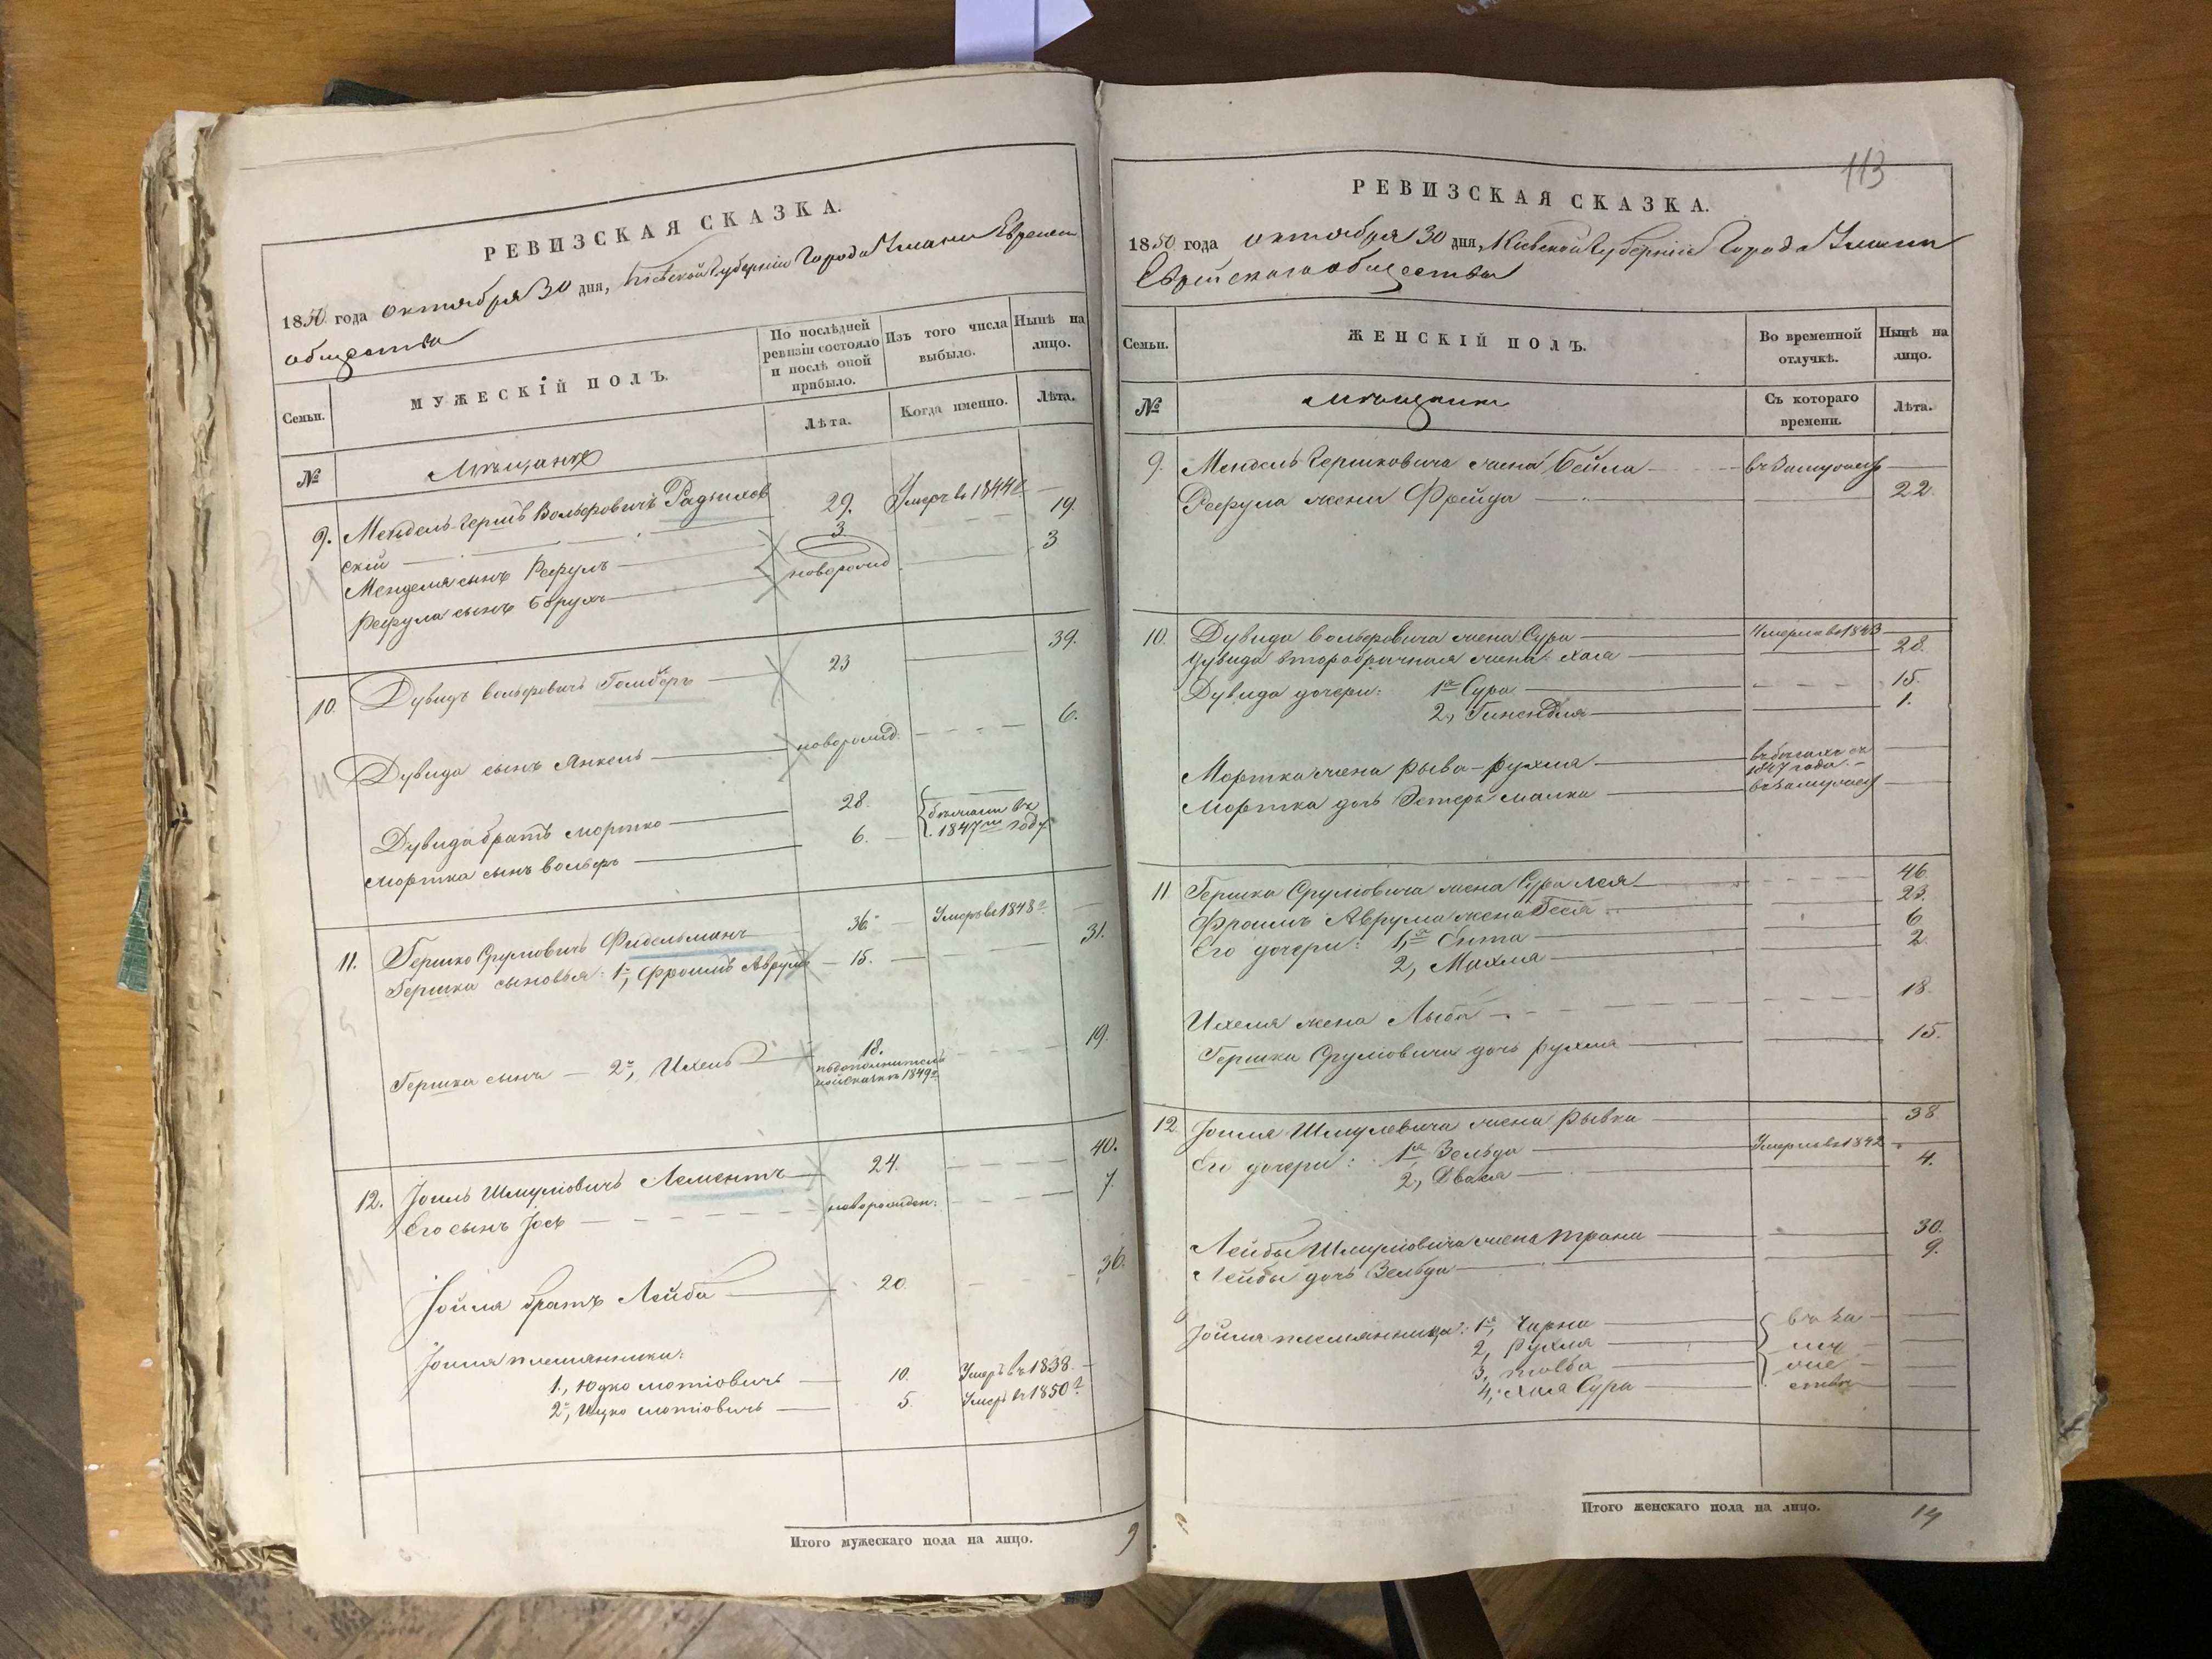 РЕВИЗСКАЯ СКАЗКА.
1850 года октября 30 дня, Кіевской Губерніи Города Умани Еврейск
общества
Семьи.
МУЖЕСКІЙ ПОЛЪ.
По послѣдней ревизіи состояло и послѣ оной прибыло.
Изъ того числа выбыло.
Нынѣ на лицо.
Лѣта.
Когда именно.
Лѣта.
№
Мѣщане
9. Мендель-Гершъ Вольфовичъ 29. Умеръ въ 1844 —
скій 3 19.
Менделя сынъ Рефулъ новорожд 3
Рефула сынъ Борухъ
10. Дувидъ Вольфовичъ Голмберъ 23 39.
Дувида сынъ Янкель новорожд. 6.
Дувида братъ Мортко 28. бѣжали въ
Мортка сынъ Вольфъ 6. 1847мъ году
11. Гершко Срулювичъ Фидельманъ 36 Умеръ въ 1848
Гершка сыновья: 1й, Фроимъ Аврумъ 15. 31.
Гершка сынъ 2й, Ихель 18. 19.
по дополнительной сказкѣ 1849
12. Іоиль Шмулiовичъ Лементъ 24. 40.
Его сынъ Іось новорожден. 7.
Іойля братъ Лейба 20. 36.
Іоиля племянники:
1., Юдко Мотіовичъ 10. Умеръ въ 1838.
2й, Ицко Мотіовичъ 5. Умеръ въ 1850
Итого мужескаго пола на лицо. 9
113
РЕВИЗСКАЯ СКАЗКА.
1850 года октября 30 дня, Кіевской Губерніи Города Умани
Еврейскаго общества
Семьи.
ЖЕНСКІЙ ПОЛЪ.
Во временной отлучкѣ.
Нынѣ на лицо.
№
Мѣщанки
Съ котораго времени.
Лѣта.
9. Мендель Гершковича жена Бейла въ замужест
Рефула жена Фрейда 22.
10. Дувида Вольфовича жена Сура Умерла въ 1843
Дувида второбрачная жена Хая 28.
Дувида дочери: 1я Сура 15.
2, Гинендля 1.
Мортка жена Рыва-Рухля въ бѣгахъ съ
1847 года.
Мортка дочь Эстеръ Малка въ замужест
11. Гершка Срулювича жена Сура Лея 46.
Фроимъ Аврума жена Бася 23.
Его дочери: 1я Бита 6.
2, Махля 2.
Ихеля жена Лыба 18.
Гершка Срулювича дочь Рухля 15.
12. Іоиля Шмулевича жена Рывка 38
Его дочери: 1я Зельда Умерла въ 1842
2, Двася 4.
Лейбы Шмулiовича жена Трана 30.
Лейбы дочь Зельда 9.
Іойля племянницы: 1я, Чарна въ за
2, Рухля му
3, Товба же
4, Хая Сура ствѣ
Итого женскаго пола на лицо. 14